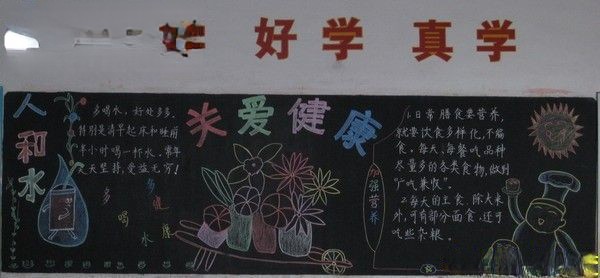 好学 真学
人和水
多喝水，好处多多，
特别是清早起床和睡前
半小时喝一杯水。常年
天天坚持，受益无穷！
多喝水
关爱健康
加强营养
1、日常膳食要营养，
就要饮食多样化，不偏
食。每天、每餐吃品种
尽量多的各类食物，做到
“广吃兼收”。
2、每天的主食，除大米
外，可有部分面食，还可
吃些杂粮。